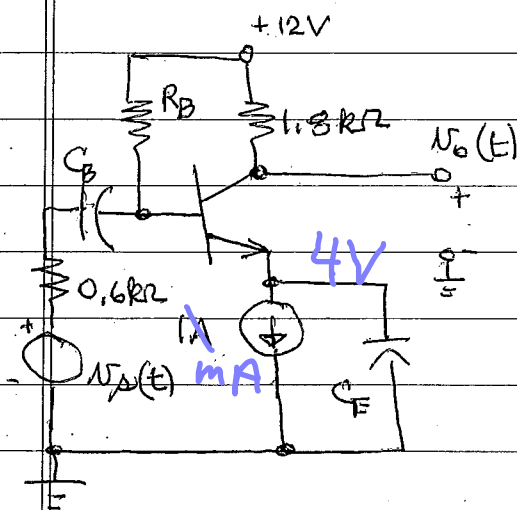 +12V
R_B
1.8kΩ
C_B
v_o(t)
+
-
4V
0.6kΩ
1A
mA
+
-
v_s(t)
C_E